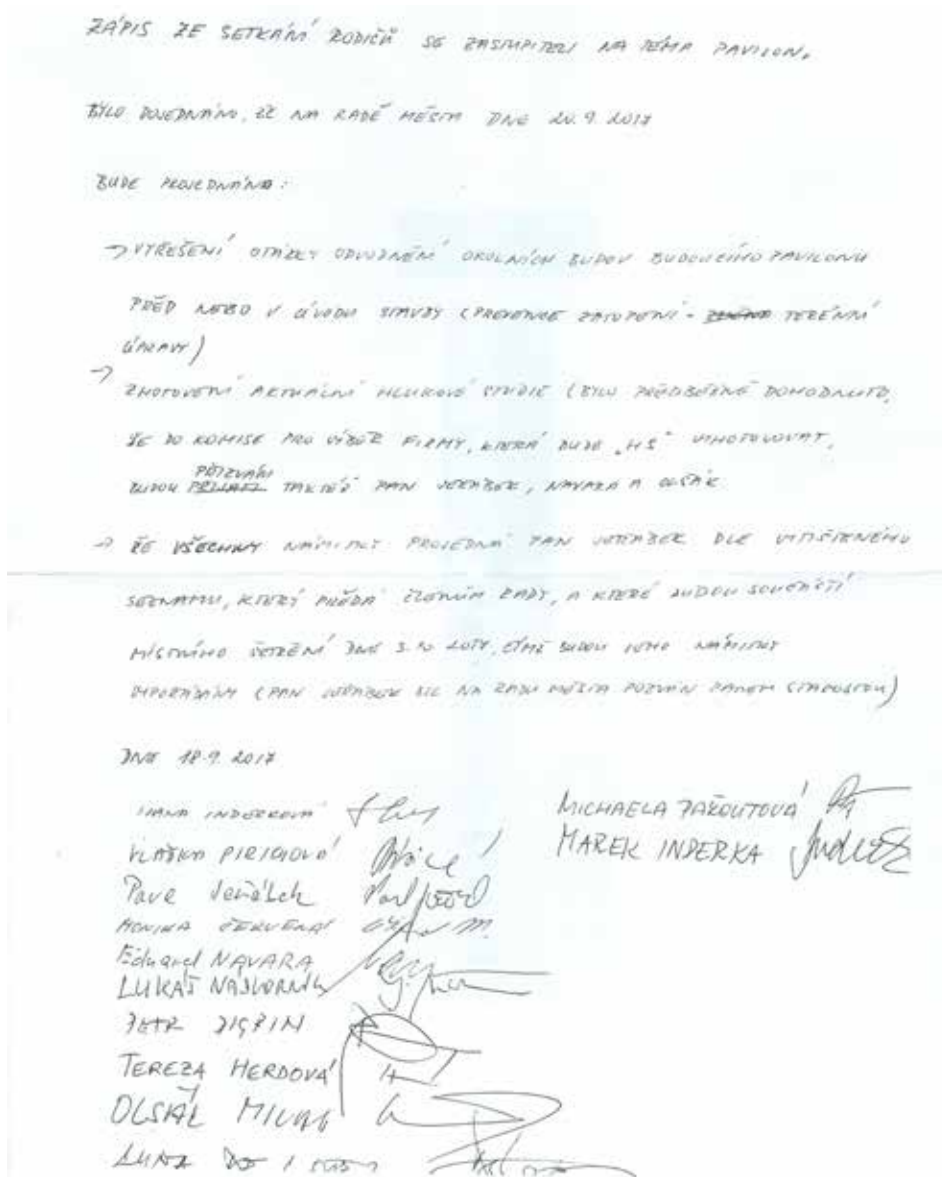 ZÁPIS ZE SETKÁNÍ RODIČŮ SE ZASTUPITELI NA TÉMA PAVILON.
BYLO DOJEDNÁNO, ŽE NA RADĚ MĚSTA DNE 20.9.2017
BUDE PROJEDNÁNO:
→ VYŘEŠENÍ OTÁZKY ODVODNĚNÍ OKOLNÍCH BUDOV BUDOUCÍHO PAVILONU
PŘED NEBO V ÚVODU STAVBY (PREVENCE ZATOPENÍ - TERÉNNÍ
ÚPRAVY)
→ ZHOTOVENÍ AKTUÁLNÍ HLUKOVÉ STUDIE (BYLO PŘEDBĚŽNĚ DOHODNUTO,
ŽE DO KOMISE PRO VÝBĚR FIRMY, KTERÁ BUDE "HS" VYHOTOVOVAT,
BUDOU PŘIZVÁNI TAKTÉŽ PAN JEŘÁBEK, NAVARA A OLŠÁK
→ ŽE VŠECHNY NÁMITKY PROJEDNÁ PAN JEŘÁBEK DLE VYTIŠTĚNÉHO
SEZNAMU, KTERÝ PŘEDÁ ČLENŮM RADY, A KTERÉ BUDOU SOUČÁSTÍ
MÍSTNÍHO ŠETŘENÍ DNE 3.10. 2017, ČÍMŽ BUDOU JEHO NÁMITKY
(PAN JEŘÁBEK BYL NA RADU MĚSTA POZVÁN PANEM STAROSTOU)
DNE 18.9.2017
IVANA INDERKOVÁ
MICHAELA PAŘOUTOVÁ
VLASTA
MAREK INDERKA
Pavel Jeřábek
MONIKA ČERVENÁ
Eduard NAVARA
LUKÁŠ
PETR
TEREZA HERDOVÁ
OLŠÁK MILAN